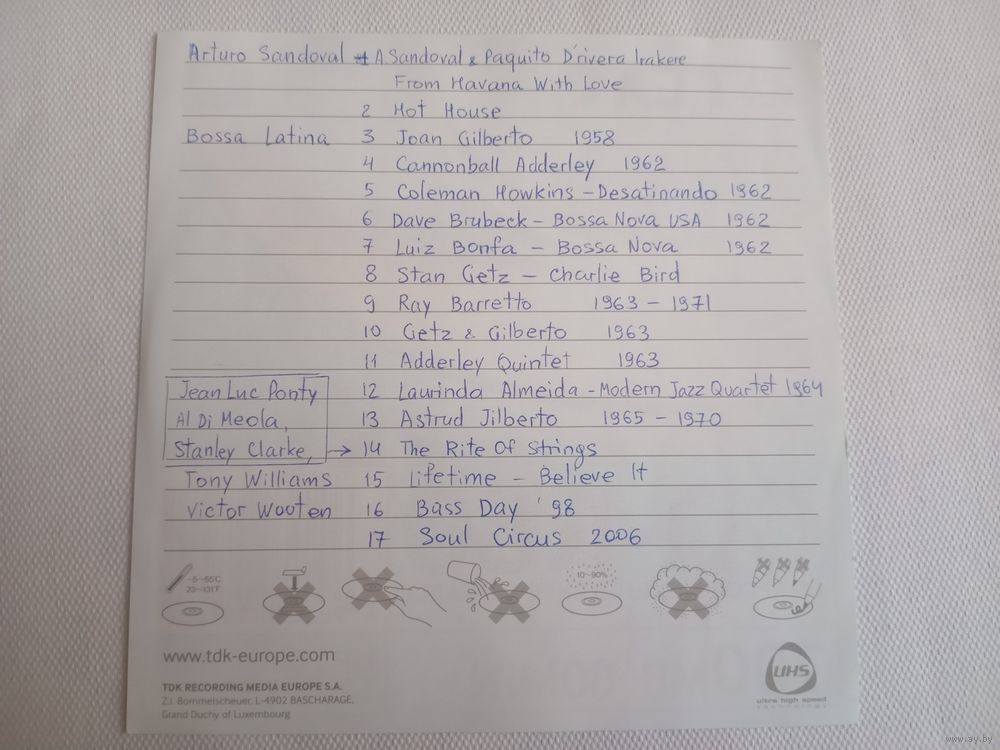 Arturo Sandoval 1 A.Sandoval & Paquito D'rivera Irakere
From Havana With Love
2 Hot House
Bossa Latina 3 Joan Gilberto 1958
4 Cannonball Adderley 1962
5 Coleman Howkins - Desatinando 1962
6 Dave Brubeck - Bossa Nova USA 1962
7 Luiz Bonfa - Bossa Nova 1962
8 Stan Getz - Charlie Bird
9 Ray Barretto 1963 - 1971
10 Getz & Gilberto 1963
11 Adderley Quintet 1963
Jean Luc Ponty 12 Laurinda Almeida - Modern Jazz Quartet 1964
Al Di Meola, 13 Astrud Jilberto 1965 - 1970
Stanley Clarke, → 14 The Rite Of Strings
Tony Williams 15 Lifetime - Believe It
Victor Wooten 16 Bass Day '98
17 Soul Circus 2006
-5~55C
23~131F
10~90%
www.tdk-europe.com
TDK RECORDING MEDIA EUROPE S.A.
Z.I. Bommelscheuer, L-4902 BASCHARAGE,
Grand Duchy of Luxembourg
UHS
ultra high speed
technology
www.ay.by